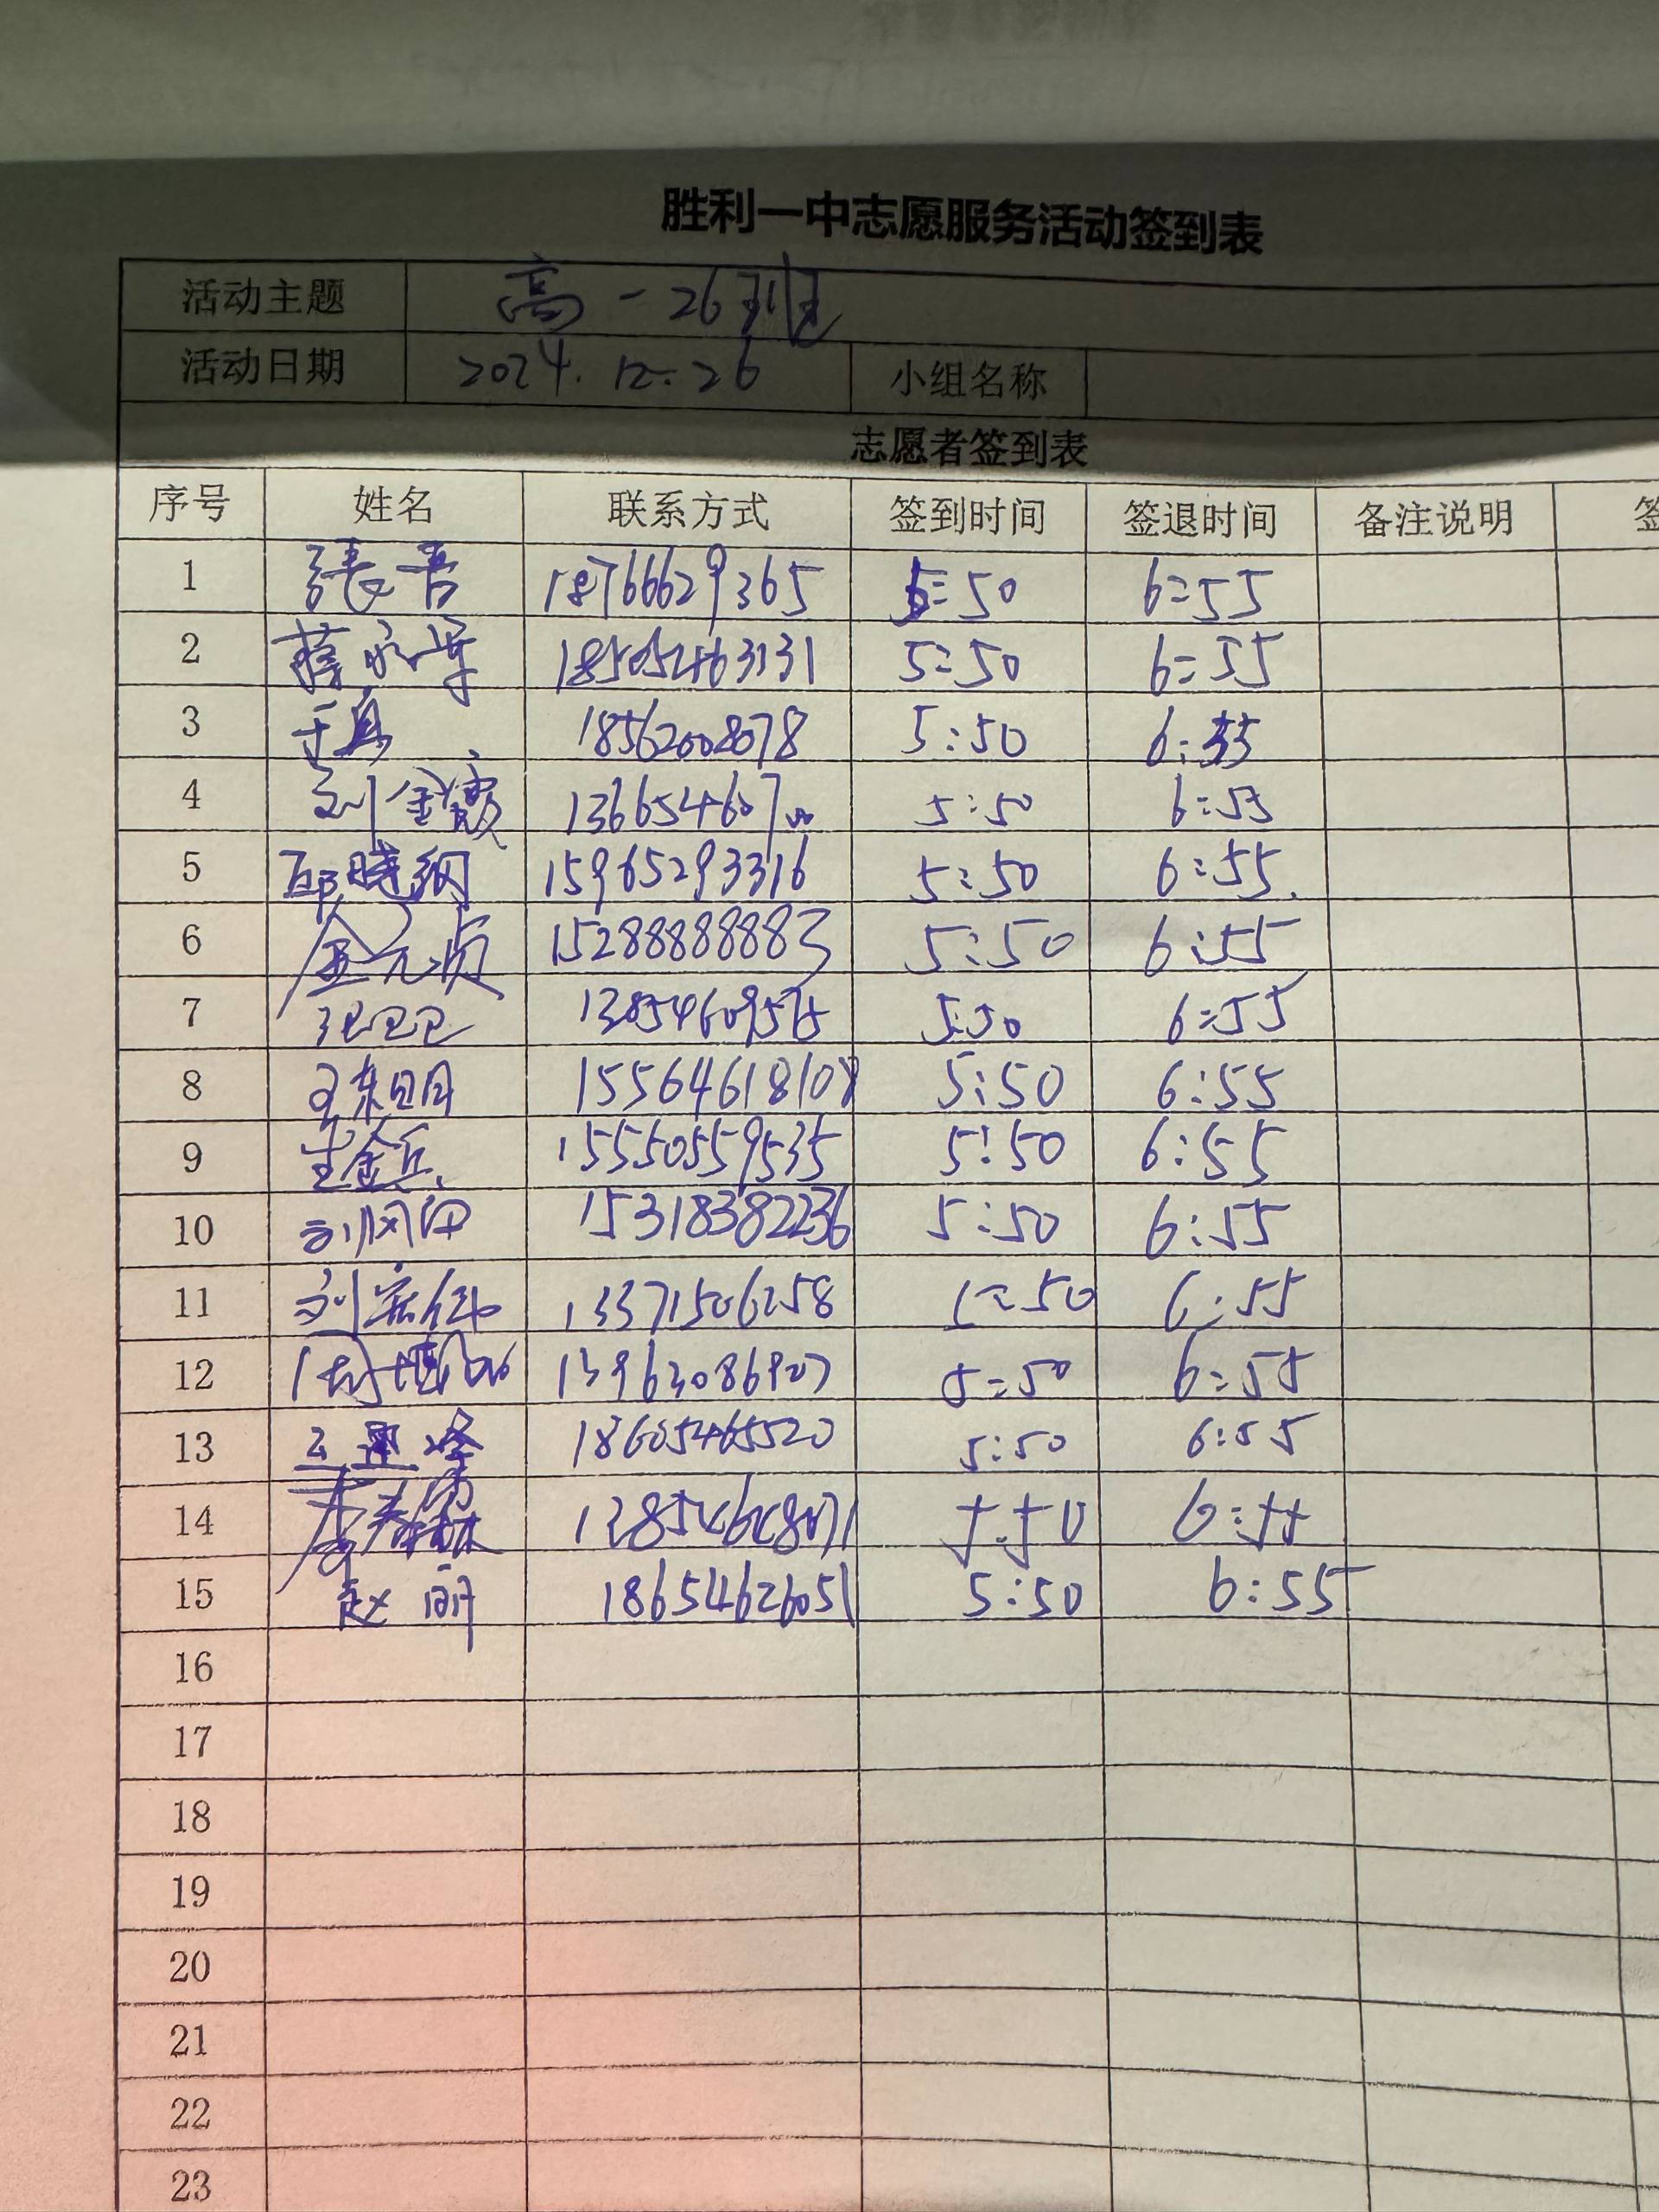 胜利一中志愿服务活动签到表
活动主题 高一26班
活动日期 2024.12.26 小组名称
志愿者签到表
序号 姓名 联系方式 签到时间 签退时间 备注说明
1 18766629365 5:50 6:55
2 18505463131 5:50 6:55
3 18562008078 5:50 6:55
4 刘金霞 5:50 6:55
5 邱晓纲 15965293316 5:50 6:55
6 15288888883 5:50 6:55
7 张卫卫 5:50 6:55
8 15564618108 5:50 6:55
9 15550559535 5:50 6:55
10 15318382236 5:50 6:55
11 13371506258 5:50 6:55
12 5:50 6:55
13 18605465520 5:50 6:55
14 5:50 6:55
15 赵丽 18654626051 5:50 6:55
16
17
18
19
20
21
22
23